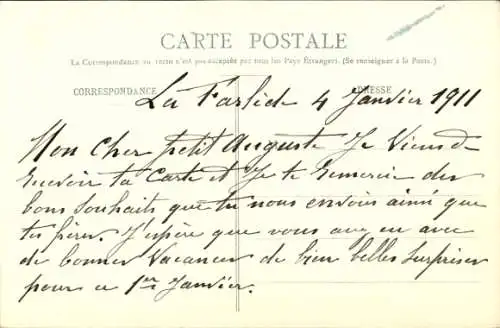 CARTE POSTALE
La Correspondance au recto n'est pas acceptée par tous les Pays Étrangers. (Se renseigner à la Poste.)
CORRESPONDANCE
ADRESSE
La Farlède 4 Janvier 1911
Mon Cher petit Auguste Je Viens de
Recevoir ta Carte et Je te Remercie des
bons Souhaits que tu nous envois ainsi que
tes frères. J'espère que vous avez eu avec
de bonnes Vacances de bien belles Surprises
pour ce 1er Janvier.